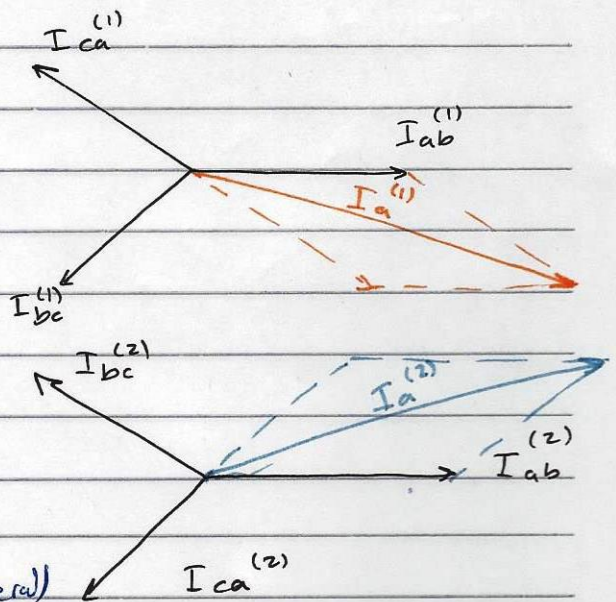 I ca (1)
I ab (1)
I a (1)
I bc (1)
I bc (2)
I a (2)
I ab (2)
I ca (2)